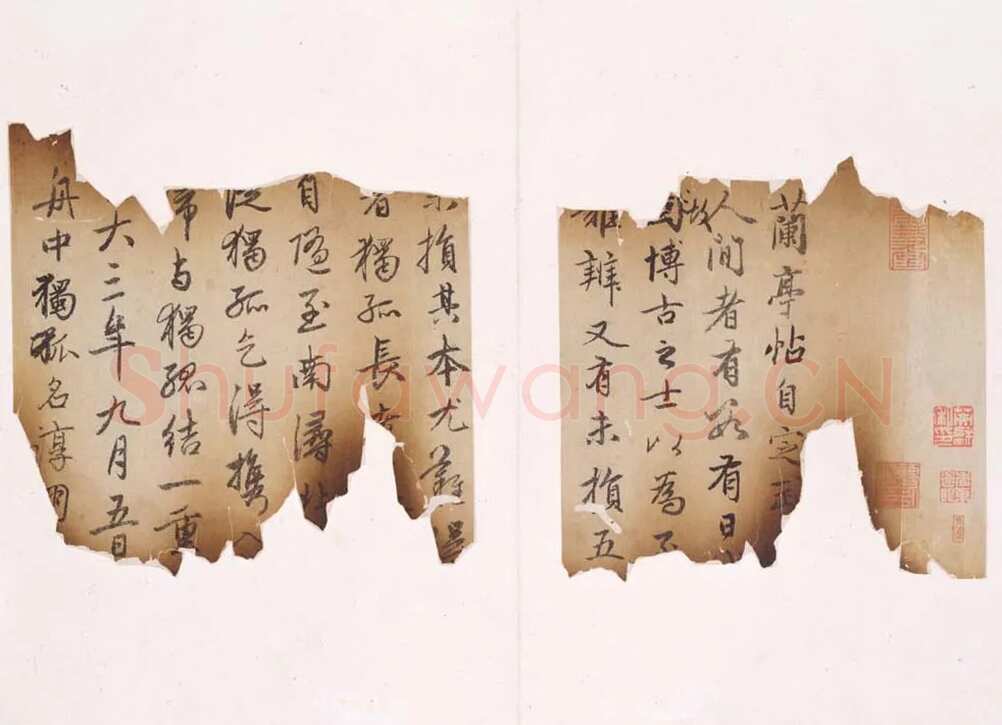 蘭亭帖自定武
人間者有數有日
故博古之士以為至
難辨又有未損五
損其本尤難得
者獨孤長老
自隨至南潯北
從獨孤乞得攜入
歸與獨孤結一重
大三年九月五日
舟中獨孤名淳朋
Shufawang.CN